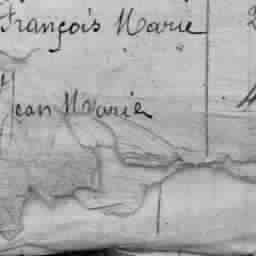 François Marie 2
Jean Marie